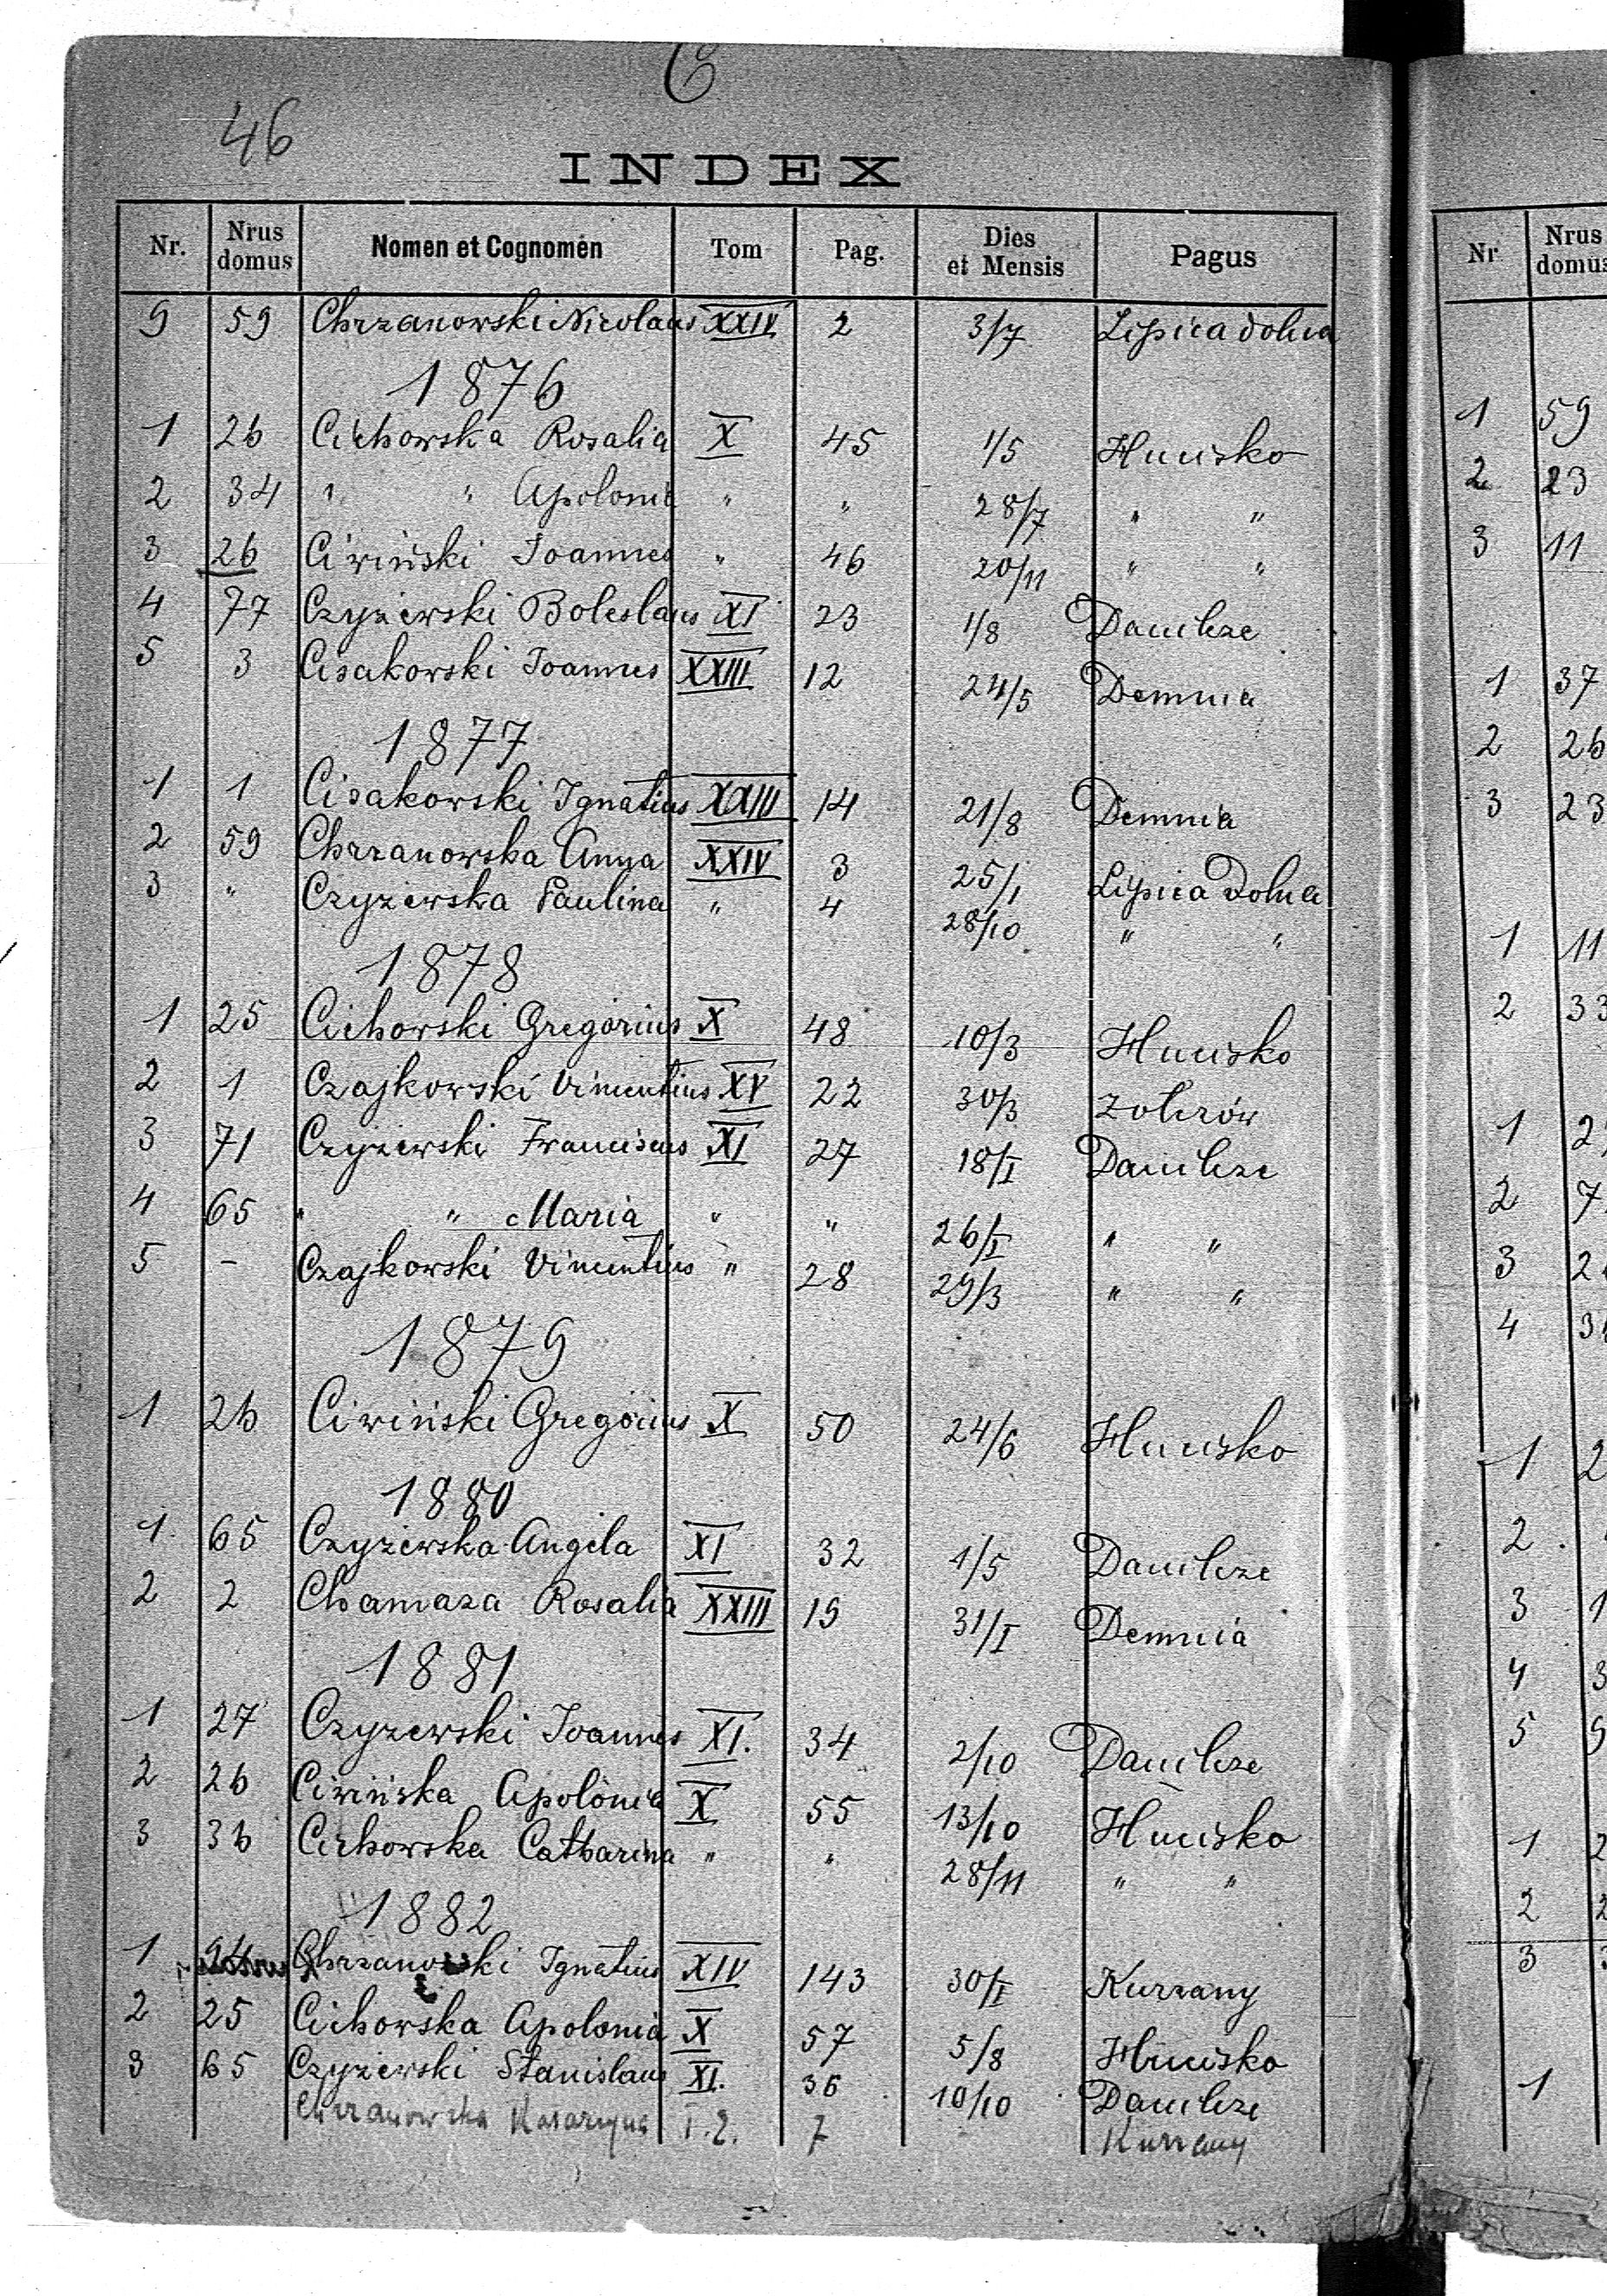 C
46
INDEX
Nr. Nrus domus Nomen et Cognomen Tom Pag. Dies et Mensis Pagus
9 59 Chrzanowski Nicolaus XXIV 2 3/7 Lipica dolna
1876
1 26 Cichowska Rosalia X 45 1/5 Hucisko
2 34 " " Apolonia " " 28/7 " "
3 26 Ciwiński Joannes " 46 20/11 " "
4 77 Czyżewski Boleslaus XI 23 1/8 Danilcze
5 3 Cisakowski Joannes XXIII 12 24/5 Demnia
1877
1 1 Cisakowski Ignatius XXIII 14 21/8 Demnia
2 59 Chrzanowska Anna XXIV 3 25/I Lipica Dolna
3 " Czyżewska Paulina " 4 28/10 " "
1878
1 25 Cichowski Gregorius X 48 10/3 Hucisko
2 1 Czajkowski Vincentius XV 22 30/3 Żołczów
3 71 Czyżewski Franciscus XI 27 18/I Danilcze
4 65 " " Maria " " 26/I " "
5 - Czajkowski Vincentius " 28 29/3 " "
1879
1 26 Ciwiński Gregorius X 50 24/6 Hucisko
1880
1 65 Czyżewska Angela XI 32 1/5 Danilcze
2 2 Chamaza Rosalia XXIII 19 31/I Demnia
1881
1 27 Czyżewski Joannes XI. 34 2/10 Danilcze
2 26 Ciwińska Apolonia X 55 13/10 Hucisko
3 36 Cichowska Catharina " " 28/11 " "
1882
1 94 Chrzanowski Ignatius XIV 143 30/I Kurzany
2 25 Cichowska Apolonia X 57 5/8 Hucisko
3 65 Czyżewski Stanislaus XI. 36 10/10 Danilcze
Chrzanowska Katarzyna T.2. 7 Kurzany
Nr Nrus domus
1 59
2 23
3 11
1 37
2 26
3 23
1 11
2 33
1 2
2 7
3 2
4 3
1 2
2
3 1
4 3
5 9
1 2
2 2
3
1